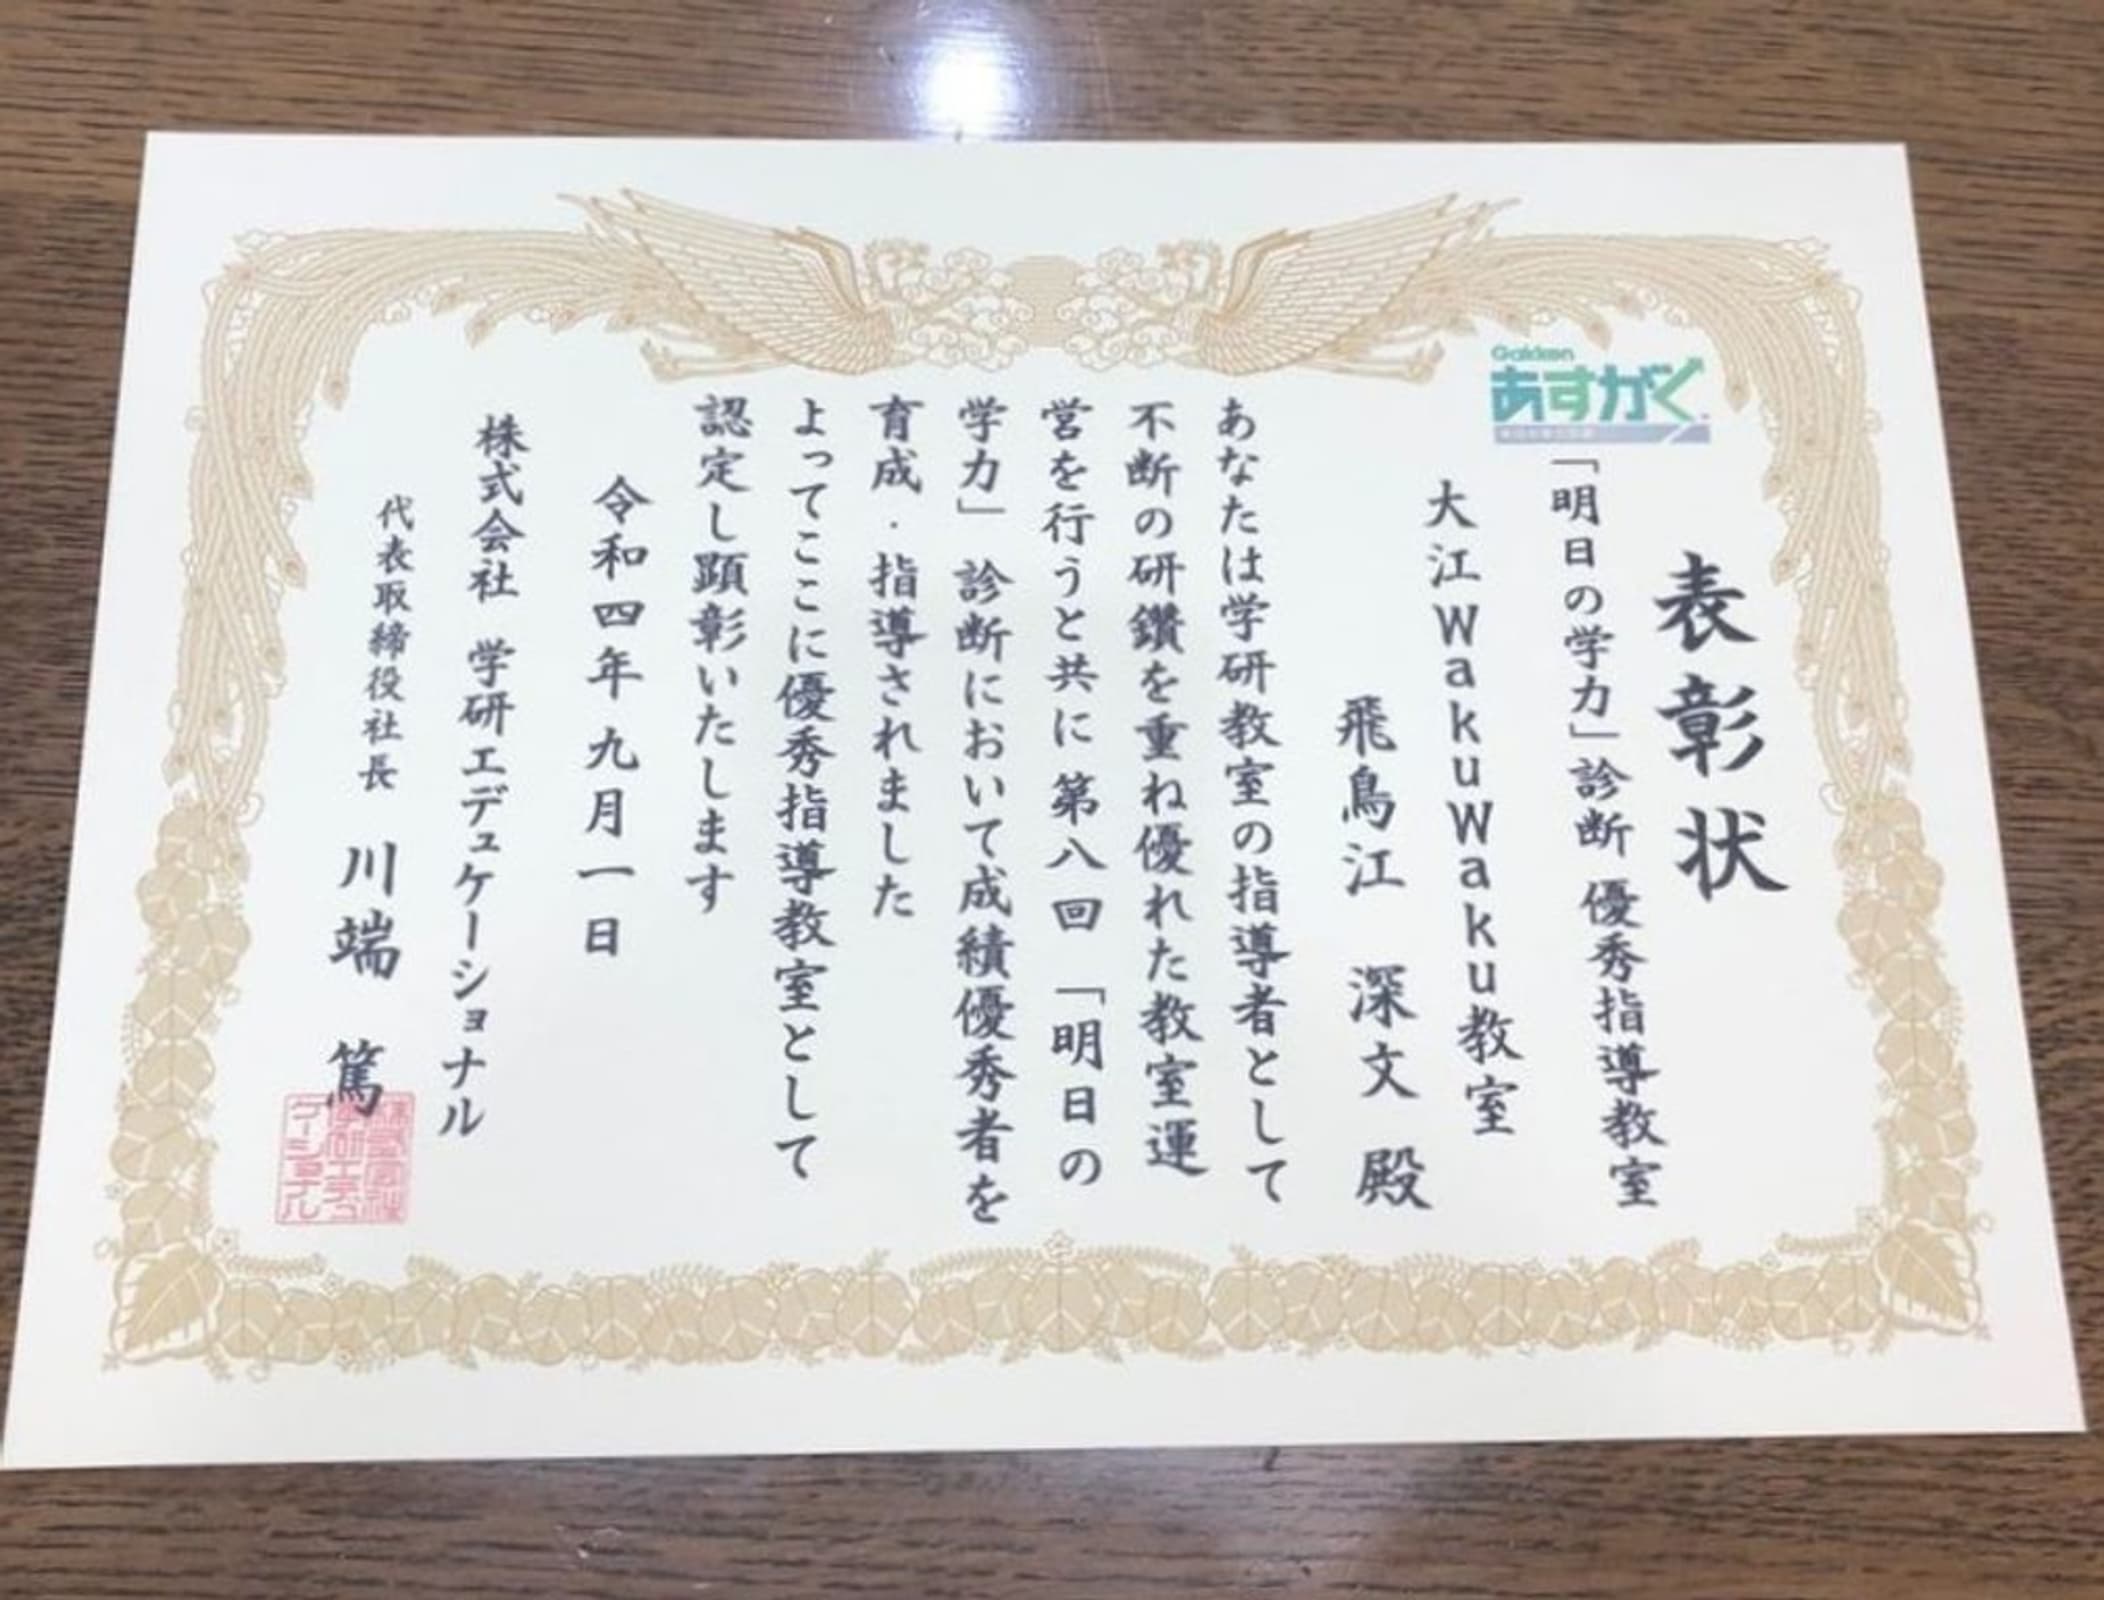 表彰状
Gakken
あすがく
「明日の学力」診断 優秀指導教室
大江WakuWaku教室
飛鳥江 深文 殿
あなたは学研教室の指導者として
不断の研鑽を重ね優れた教室運
営を行うと共に第八回「明日の
学力」診断において成績優秀者を
育成・指導されました
よってここに優秀指導教室として
認定し顕彰いたします
令和四年九月一日
株式会社 学研エデュケーショナル
代表取締役社長 川端 篤
株式会社
学研エデュ
ケーショナル